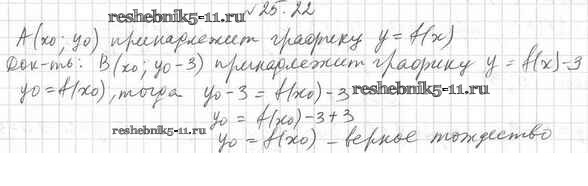 №25.22
reshebnik5-11.ru
A(x0; y0) принарлежит графику y = f(x)
Док-ть: B(x0; y0-3) принарлежит графику y = f(x)-3
y0 = f(x0), тогда y0-3 = f(x0)-3
reshebnik5-11.ru
y0 = f(x0)-3+3
reshebnik5-11.ru
y0 = f(x0) - верное тождество